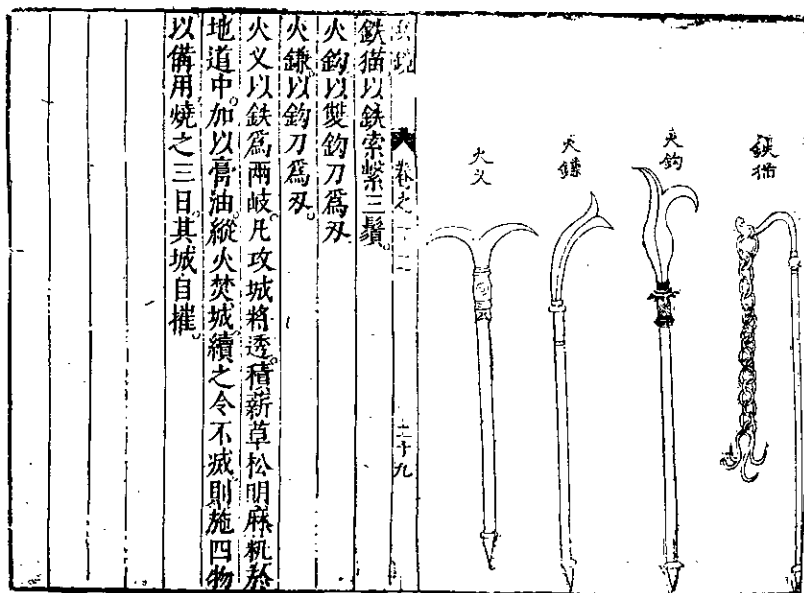 鉄猫
火鈎
火鐮
火义
卷之十二
三十九
鉄猫以鉄索繫三鬚。
火鈎以雙鈎刀爲刃
火鐮以鈎刀爲刃。
火义以鉄爲兩岐。凡攻城將透。積薪草松明麻籸於
地道中。加以膏油。縱火焚城。續之令不滅。則施四物
以備用。燒之三日。其城自摧。